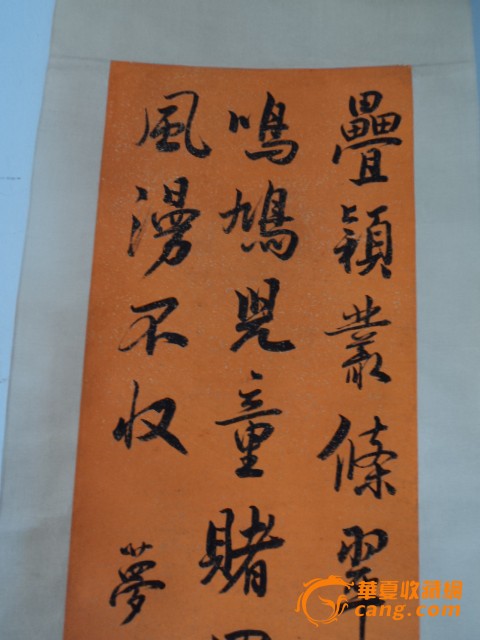 疊穎叢條翠
鳴鳩兒童賭
風漫不收 夢
華夏收藏網
cang.com